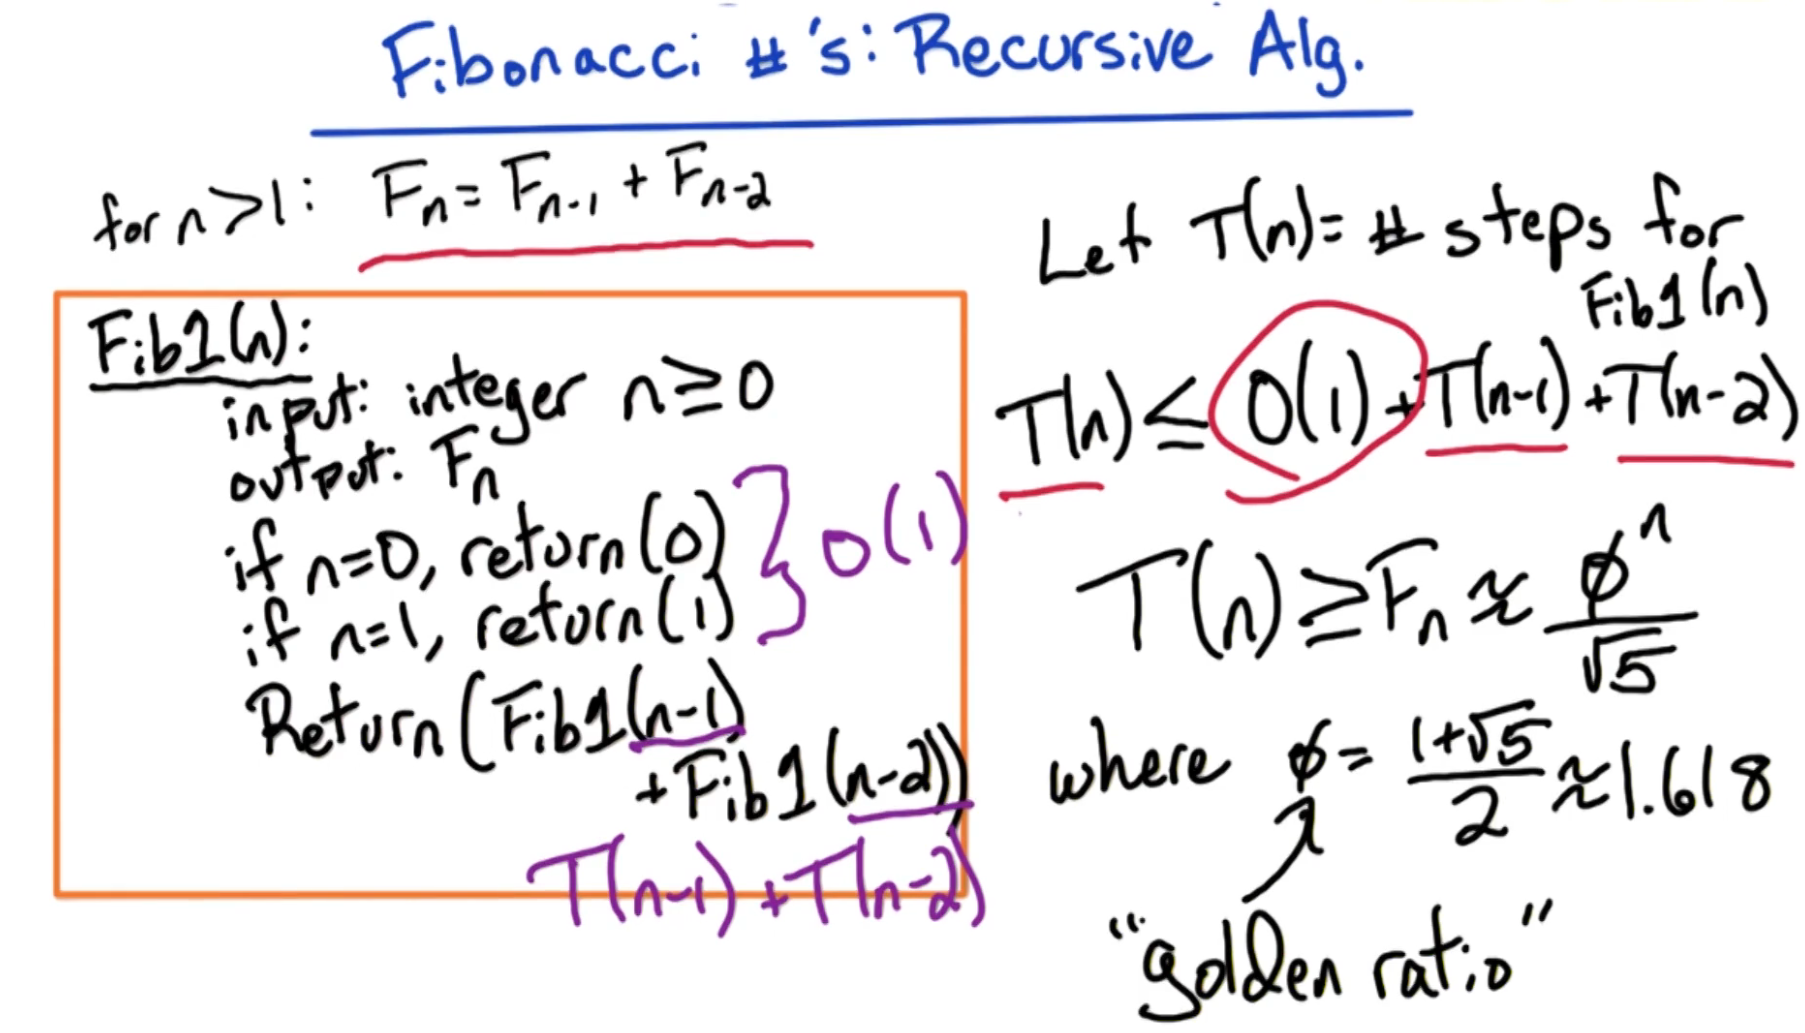 Fibonacci #'s: Recursive Alg.
for n>1: Fₙ = Fₙ₋₁ + Fₙ₋₂
Fib1(n):
input: integer n ≥ 0
output: Fₙ
if n=0, return(0)
if n=1, return(1)
} O(1)
Return(Fib1(n-1)
+Fib1(n-2))
T(n-1)+T(n-2)
Let T(n)= # steps for
Fib1(n)
T(n) ≤ O(1)+T(n-1)+T(n-2)
T(n) ≥ Fₙ ≈ φⁿ/√5
where φ = (1+√5)/2 ≈ 1.618
"golden ratio"